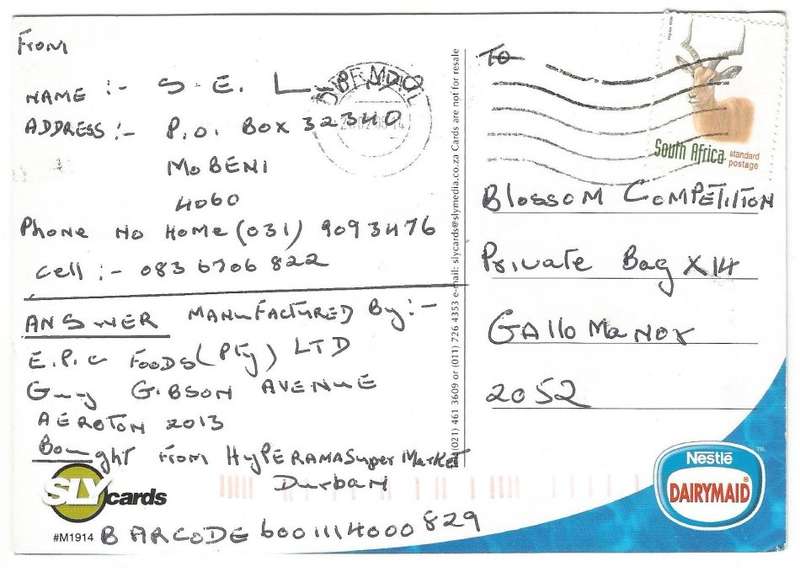 From
NAME :- S. E.
ADDRESS :- P.O. BOX 32340
MOBENI
4060
Phone No Home (031) 9093476
Cell :- 083 6706 822
ANSWER MANUFACTURED By :-
E.P.C FOODS (Pty) LTD
Guy GIBSON AVENUE
AEROTON 2013
Bought From HyPERAMA Super Market
Durban
BARCODE 6001114000829
SLY cards
#M1914
(021) 461 3609 or (011) 726 4353 e-mail: slycards@slymedia.co.za Cards are not for resale
TO
South Africa
standard
postage
Blossom COMPETITION
Private Bag X14
GAllo MaNoR
2052
Nestlé
DAIRYMAID